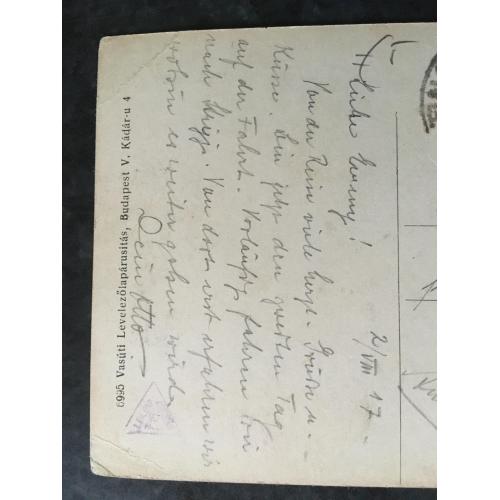 2/VIII 17
Liebe !
Von der Reise viele herzl. Grüße u.
Küsse. Bin jetzt den zweiten Tag
auf der Fahrt. Vorläufig fahren wir
nach . Von dort erst erfahren wir
wohin es weiter gehen würde.
Dein Otto
6995 Vasúti Levelezőlapárusitás, Budapest V. Kádár-u 4